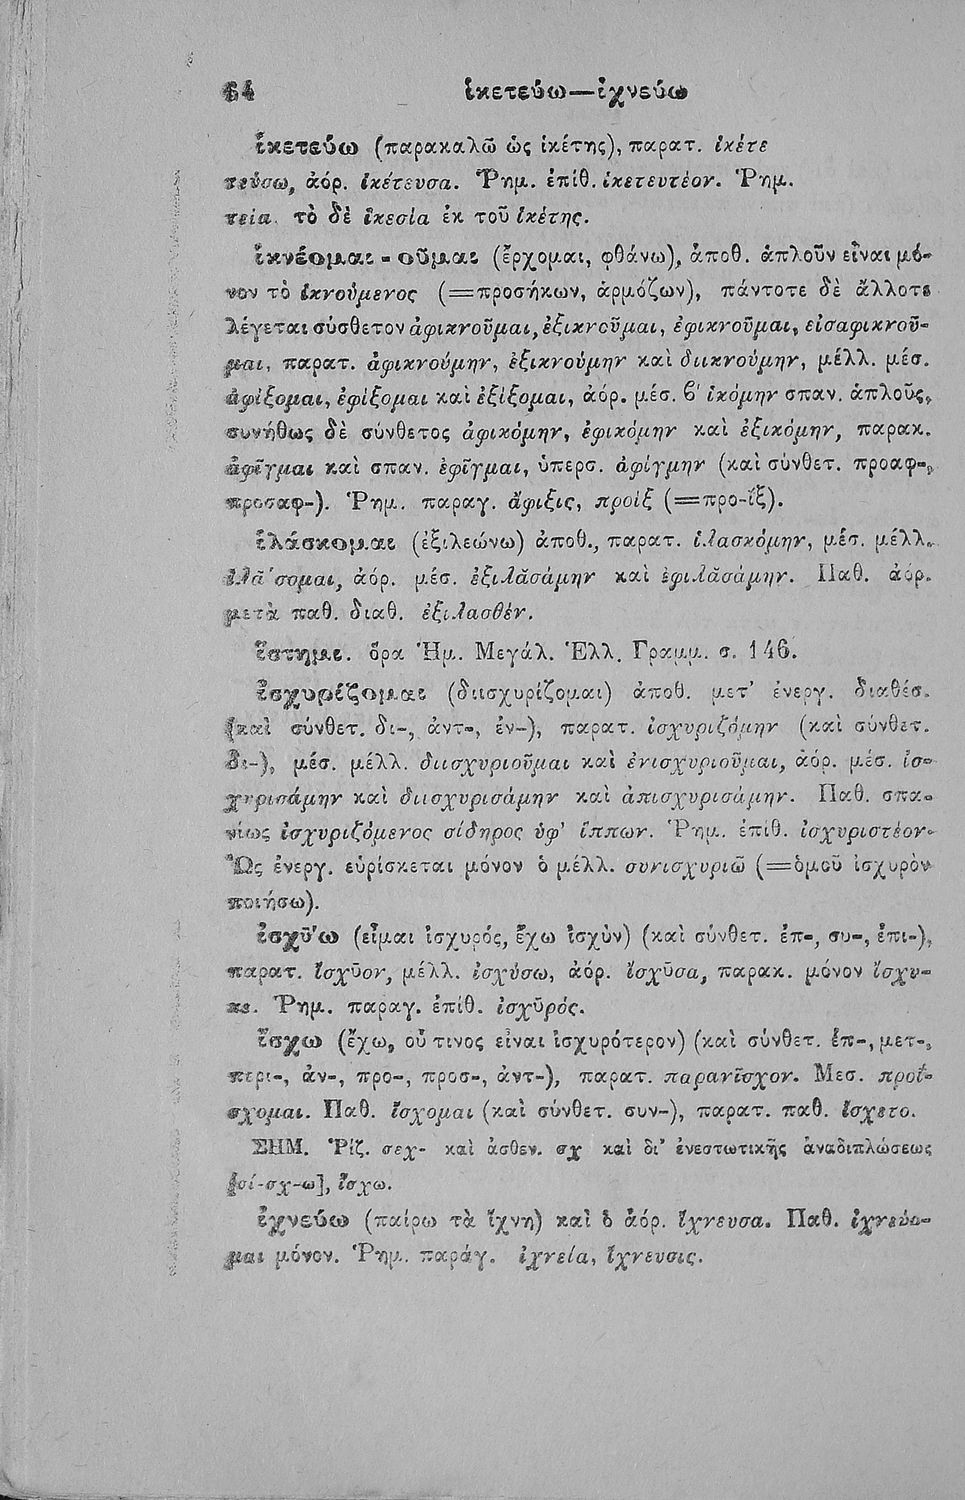 64 ἱκετεύω—ἰχνεύω
ἱκετεύω (παρακαλῶ ὡς ἱκέτης), παρατ. ἱκέτε
τεύσω, ἀόρ. ἱκέτευσα. Ῥημ. ἐπίθ. ἱκετευτέον. Ῥημ.
τεία. τὸ δὲ ἱκεσία ἐκ τοῦ ἱκέτης.
ἱκνέομαι - οῦμαι (ἔρχομαι, φθάνω), ἀποθ. ἁπλοῦν εἶναι μό-
νον τὸ ἱκνούμενος (=προσήκων, ἁρμόζων), πάντοτε δὲ ἄλλοτε
λέγεται σύσθετον ἀφικνοῦμαι, ἐξικνοῦμαι, ἐφικνοῦμαι, εἰσαφικνοῦ-
μαι, παρατ. ἀφικνούμην, ἐξικνούμην καὶ διικνούμην, μέλλ. μέσ.
ἀφίξομαι, ἐφίξομαι καὶ ἐξίξομαι, ἀόρ. μέσ. β' ἱκόμην σπαν. ἁπλοῦς,
συνήθως δὲ σύνθετος ἀφικόμην, ἐφικόμην καὶ ἐξικόμην, παρακ.
ἀφῖγμαι καὶ σπαν. ἐφῖγμαι, ὑπερσ. ἀφίγμην (καὶ σύνθετ. προαφ-,
προσαφ-). Ῥημ. παραγ. ἄφιξις, προΐξ (=προ-ΐξ).
ἱλάσκομαι (ἐξιλεώνω) ἀποθ., παρατ. ἱλασκόμην, μέσ. μέλλ.
ἱλᾰ́σομαι, ἀόρ. μέσ. ἐξιλᾰσάμην καὶ ἐφιλᾰσάμην. Παθ. ἀόρ.
μετὰ παθ. διαθ. ἐξιλασθέν.
ἵστημι. ὅρα Ἡμ. Μεγάλ. Ἑλλ. Γραμμ. σ. 146.
ἰσχυρίζομαι (διισχυρίζομαι) ἀποθ. μετ' ἐνεργ. διαθέσ.
(καὶ σύνθετ. δι-, ἀντ-, ἐν-), παρατ. ἰσχυριζόμην (καὶ σύνθετ.
δι-), μέσ. μέλλ. διισχυριοῦμαι καὶ ἐνισχυριοῦμαι, ἀόρ. μέσ. ἰσ-
χυρισάμην καὶ διισχυρισάμην καὶ ἀπισχυρισάμην. Παθ. σπα-
νίως ἰσχυριζόμενος σίδηρος ὑφ' ἵππων. Ῥημ. ἐπίθ. ἰσχυριστέον.
Ὡς ἐνεργ. εὑρίσκεται μόνον ὁ μέλλ. συνισχυριῶ (=ὁμοῦ ἰσχυρὸν
ποιήσω).
ἰσχῡ́ω (εἶμαι ἰσχυρός, ἔχω ἰσχὺν) (καὶ σύνθετ. ἐπ-, συ-, ἐπι-),
παρατ. ἴσχῡον, μέλλ. ἰσχύσω, ἀόρ. ἴσχῡσα, παρακ. μόνον ἴσχυ-
κε. Ῥημ. παραγ. ἐπίθ. ἰσχῡρός.
ἴσχω (ἔχω, οὗ τινος εἶναι ἰσχυρότερον) (καὶ σύνθετ. ἐπ-, μετ-,
περι-, ἀν-, προ-, προσ-, ἀντ-), παρατ. παρανῖσχον. Μεσ. προΐ-
σχομαι. Παθ. ἴσχομαι (καὶ σύνθετ. συν-), παρατ. παθ. ἴσχετο.
ΣΗΜ. Ῥίζ. σεχ- καὶ ἀσθεν. σχ καὶ δι' ἐνεστωτικῆς ἀναδιπλώσεως
[σί-σχ-ω], ἴσχω.
ἰχνεύω (παίρω τὰ ἴχνη) καὶ ὁ ἀόρ. ἴχνευσα. Παθ. ἰχνεύο-
μαι μόνον. Ῥημ. παράγ. ἰχνεία, ἴχνευσις.